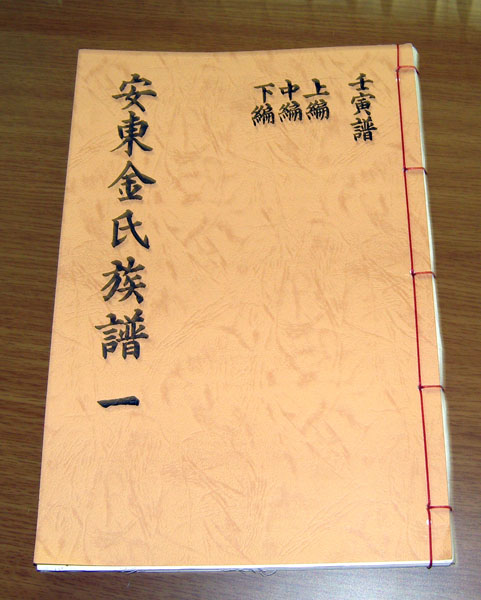 壬寅譜
上編
中編
下編
安東金氏族譜 一